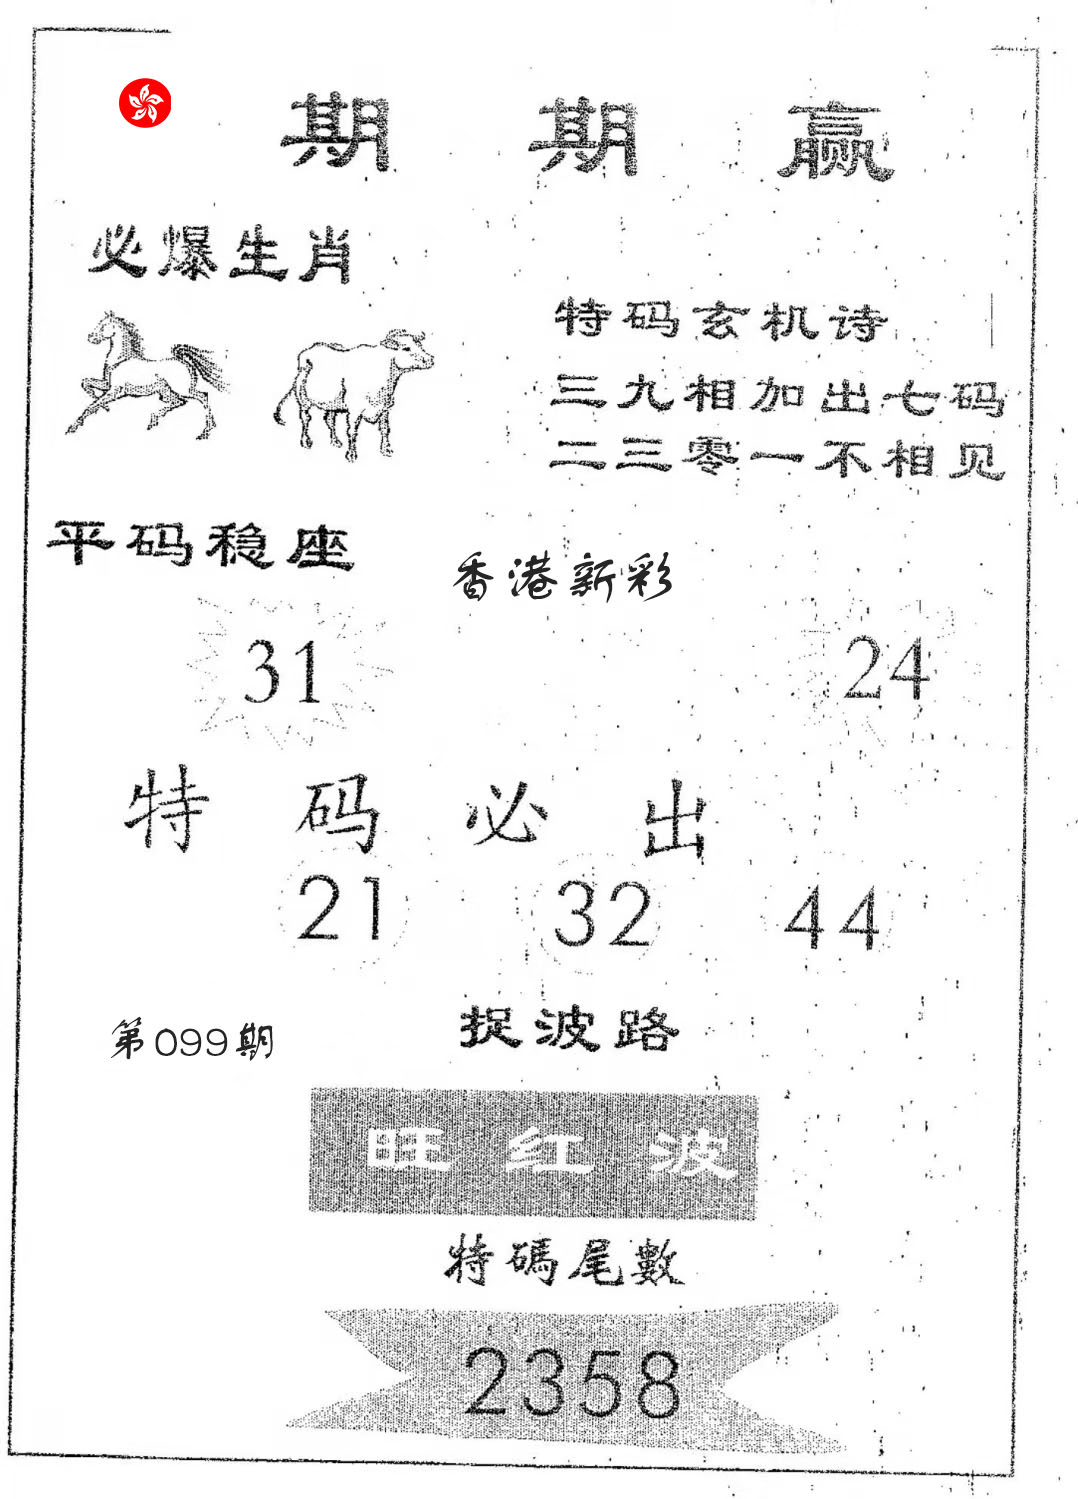 期期赢
必爆生肖
特码玄机诗
三九相加出七码
二三零一不相见
平码稳座
香港新彩
31
24
特码必出
21 32 44
第099期
捉波路
旺红波
特碼尾數
2358